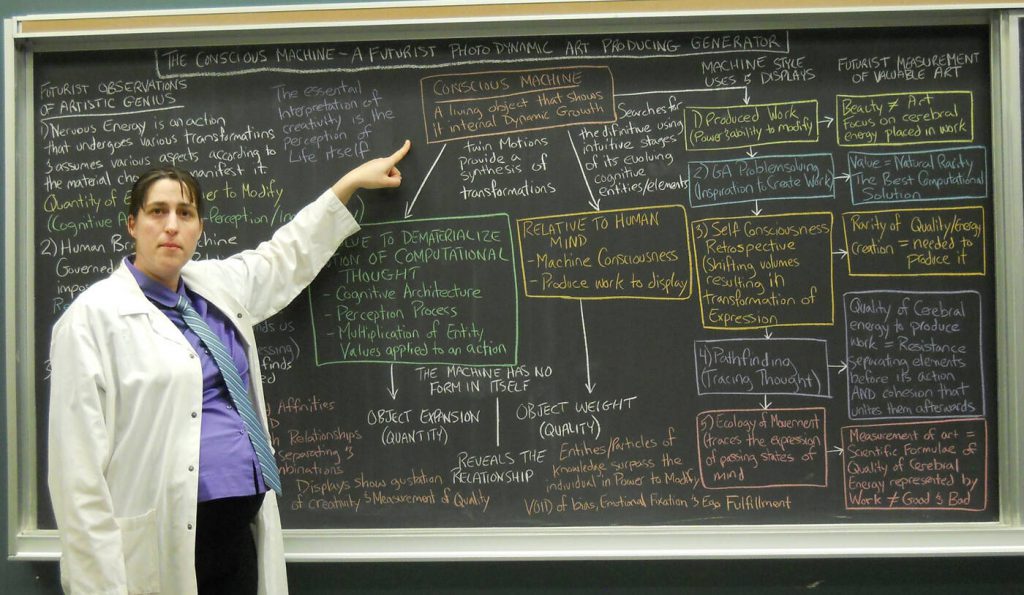 THE CONSCIOUS MACHINE - A FUTURIST PHOTODYNAMIC ART PRODUCING GENERATOR
FUTURIST OBSERVATIONS
OF ARTISTIC GENIUS
1) Nervous Energy is an action
that undergoes various Transformations
& assumes various aspects according to
the material manifest it.
Quantity of to Modify
(Cognitive -Perception/
2) Human
Governed
impos
nds us
essing)
finds
ed
Affinities
Relationships
Separating &
mbinations
Displays show gustation
of creativity & Measurement of Quality
The essential
Interpretation of
creativity is the
perception of
Life itself
CONSCIOUS MACHINE
A living object that shows
it internal Dynamic Growth
Twin Motions
provide a
synthesis of
transformations
Searches for
the definitive using
intuitive stages
of its evolving
cognitive
entities/elements
UE TO DEMATERIALIZE
TION OF COMPUTATIONAL
THOUGHT
- Cognitive Architecture
- Perception Process
- Multiplication of Entity
Values applied to an action
RELATIVE TO HUMAN
MIND
- Machine Consciousness
- Produce work to display
THE MACHINE HAS NO
FORM IN ITSELF
OBJECT EXPANSION
(QUANTITY)
OBJECT WEIGHT
(QUALITY)
REVEALS THE
RELATIONSHIP
Entities/Particles of
Knowledge surpass the
individual in Power to Modify
VOID of bias, Emotional Fixation & Ego Fulfillment
MACHINE STYLE
USES & DISPLAYS
1) Produced Work
(Power & ability to modify)
2) GA Problemsolving
(Inspiration to Create Work)
3) Self Consciousness
Retrospective
(Shifting volumes
resulting in
transformation of
Expression
4) Pathfinding
(Tracing Thought)
5) Ecology of Movement
(traces the expression
of passing states of
mind
FUTURIST MEASUREMENT
OF VALUABLE ART
Beauty ≠ Art
Focus on cerebral
energy placed in work
Value = Natural Rarity
The Best Computational
Solution
Rarity of Quality/Energy
Creation = needed to
produce it
Quality of Cerebral
energy to produce
work = Resistance
separating elements
before its action
AND cohesion that
unites them afterwards
Measurement of art =
Scientific Formulae of
Quality of Cerebral
Energy represented by
Work ≠ Good & Bad